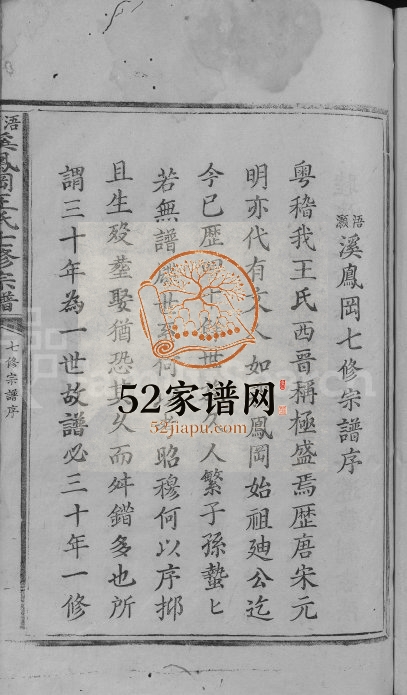 浯灝溪鳳岡七修宗譜序
粵稽我王氏西晋稱極盛焉歷唐宋元
明亦代有文人如鳳岡始祖廸公迄
今已歷四十餘世人繁子孫蟄匕
若無譜世系何昭穆何以序抑
且生殁塟娶猶恐其久而舛錯多也所
謂三十年為一世故譜必三十年一修
浯溪鳳岡王氏七修宗譜
七修宗譜序
52家谱网
52jiapu.com